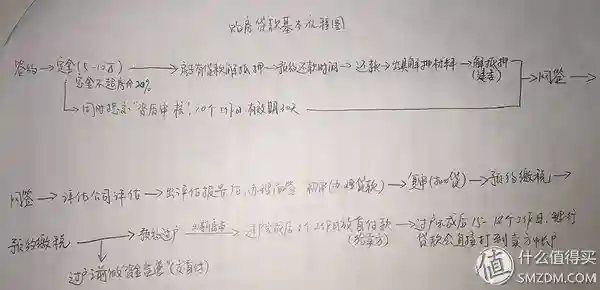 购房贷款基本流程图
签约→定金(5-10万)→房子有贷款解抵押→预约还款时间→还款→出具解押材料→解抵押→网签→
定金不超房价20%
(建委)
→同时提交"购房审核",10个工作日有效期30天
网签→评估公司评估→出评估报告后,办理面签 初审(办理贷款)→复审(批贷)→预约缴税→
预约缴税→预约过户→过户完成后 个工作日放首付款→过户完成后15-18个工作日,银行
出新房本
(给卖方)
贷款会直接打到卖方帐户
过户之前做"资金监管"(交首付)
值 什么值得买
SMZDM.COM